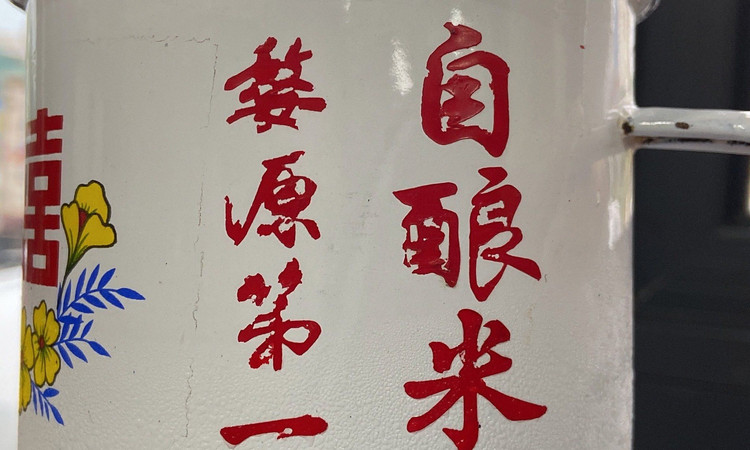 自酿米
婺源第一
囍